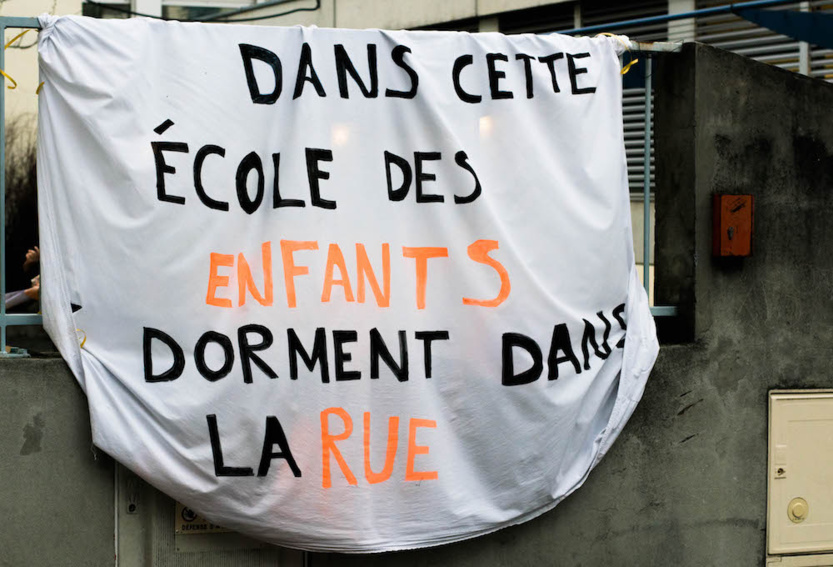 DANS CETTE
ÉCOLE DES
ENFANTS
DORMENT DANS
LA RUE